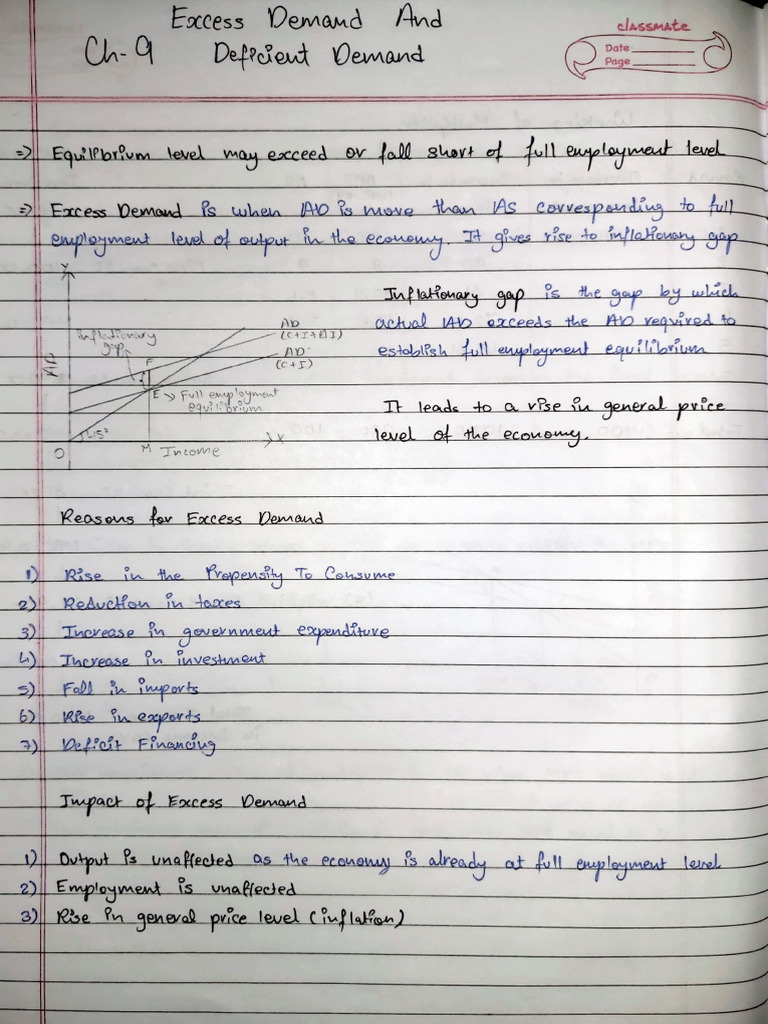 Excess Demand And
Ch-9 Deficient Demand
classmate
Date
Page
=> Equilibrium level may exceed or fall short of full employment level
=> Excess Demand is when AD is more than AS corresponding to full
employment level of output in the economy. It gives rise to inflationary gap
Inflationary gap is the gap by which
actual AD exceeds the AD required to
establish full employment equilibrium
It leads to a rise in general price
level of the economy.
Y
AD
inflationary
gap
F
AD
AD
(C+I)
E → Full employment
equilibrium
45°
O
M
Income
X
Reasons for Excess Demand
1) Rise in the Propensity To Consume
2) Reduction in taxes
3) Increase in government expenditure
4) Increase in investment
5) Fall in imports
6) Rise in exports
7) Deficit Financing
Impact of Excess Demand
1) Output is unaffected as the economy is already at full employment level
2) Employment is unaffected
3) Rise in general price level (inflation)